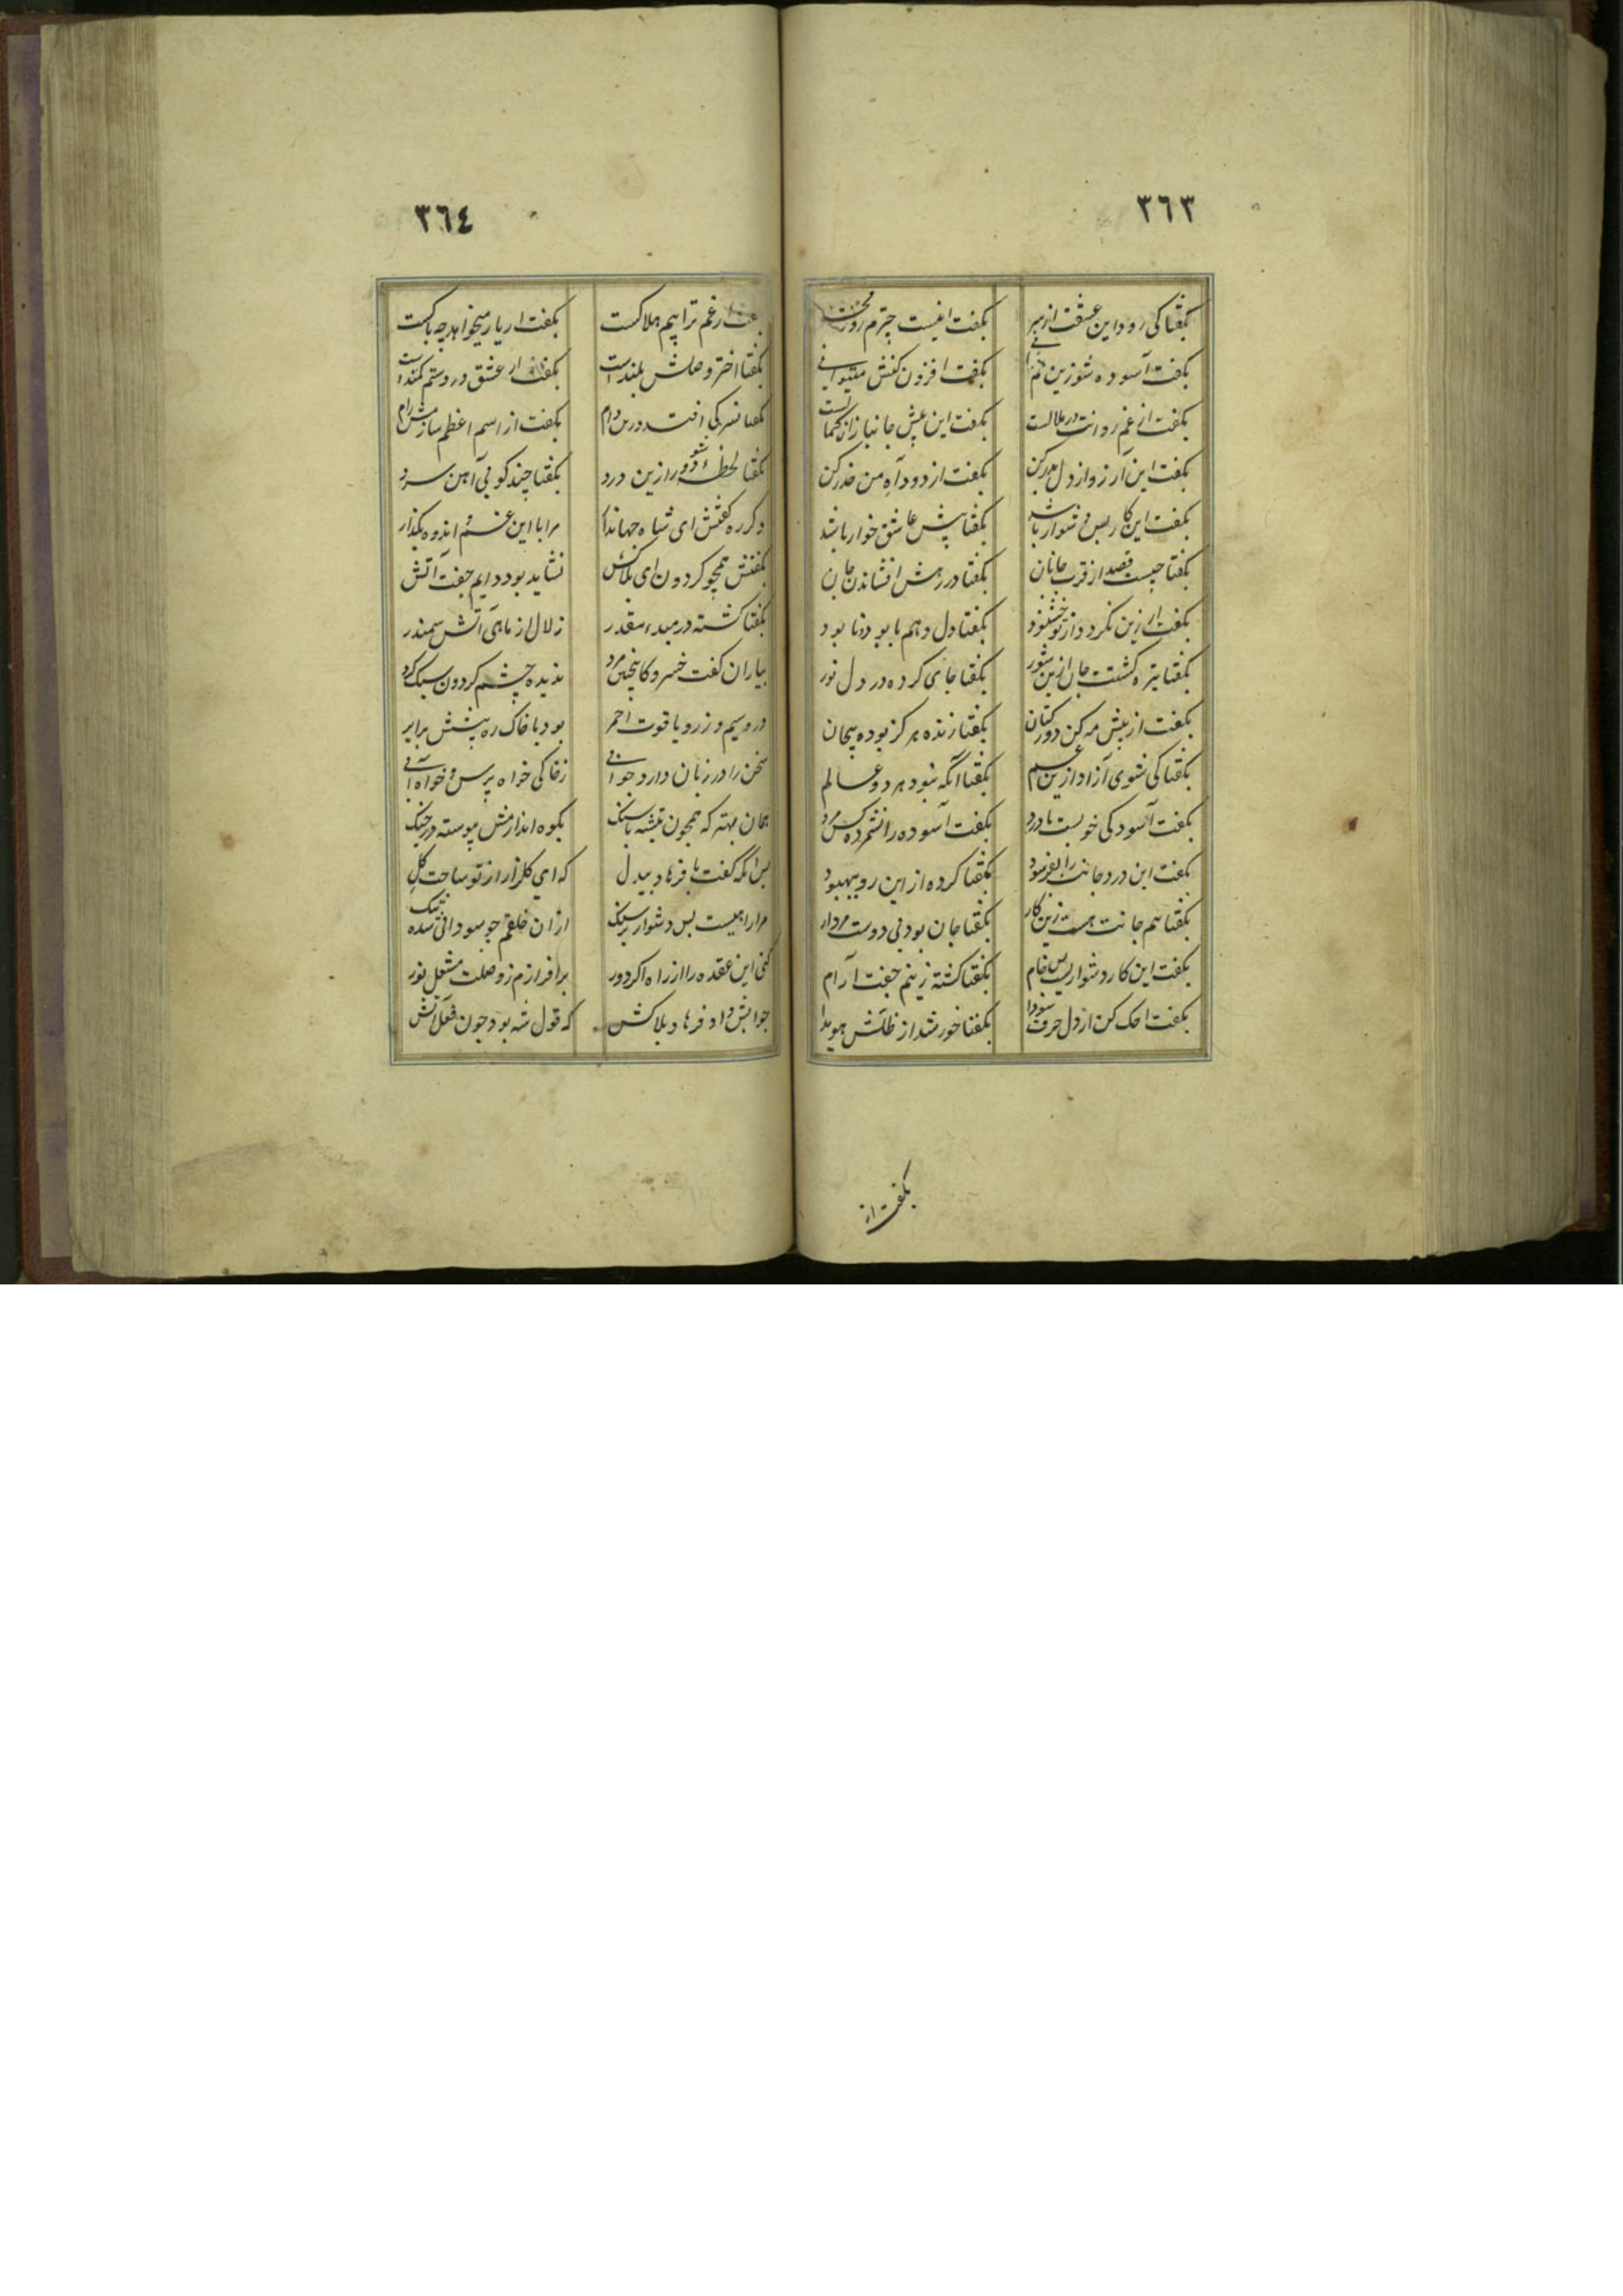 ٣٦٣
بگفتا کی رود این عشقت از سر بگفت اینست چترم روز محشر
بگفت آسوده شو زین بگفت افزون کنش میتوانی
بگفت از غم روانت در ملالست بگفت این عیش جانبازان
بگفت این آرزو از دل بدر کن بگفت از دود آه من حذر کن
بگفت این کار بس دشوار باشد بگفتا پیش عاشق خوار باشد
بگفتا چیست قصد از قرب جانان بگفتا در رهش افشاندن جان
بگفت ار زین نگردد از تو خشنود بگفتا دل دهم با بود و نابود
بگفتا تیره گشتت جان ازین شور بگفتا جای کرده در دل نور
بگفت از پیش مه کن دور کتان بگفتا زنده هرگز بوده بیجان
بگفتا کی شوی آزاد ازین غم بگفتا آنگه نبود هر دو عالم
بگفت آسودگی خوبست یا درد بگفت آسوده را نشمرده کس مرد
بگفت این درد جانت را بفرسود بگفتا کرده از این رو بهبود
بگفتا هم جانت هست زین کار بگفتا جان بود بی دوست مردار
بگفت این کار دشوار بس خام بگفتا گشته زینم جفت آرام
بگفتا حک کن از دل حرف سودا بگفتا خور شد از ظلش هویدا
بگفت از
٣٦٤
رغم ترا بیم هلاکست بگفت ار یار میخواهد چه باکست
بگفتا اختر وصلش بلندست بگفتا از عشق در دستم کمندست
بگفتا نسر کی افتد درین دام بگفت از اسم اعظم سازمش رام
بگفتا لحظهٔ شو دور ازین درد بگفتا چند کوبی آهن سرد
دگر ره گفتش ای شاه جهاندار مرا با این غم و اندوه بگذار
بگفتش همچو گردون ای بلاکش نشاید بود دایم جفت آتش
بگفتا گشته در مبدء مقدر زلال از ماهی آتش سمندر
بیاران گفت خسرو کاینچنین مرد ندیده چشم گردون سبک گرد
در و سیم و زر و یاقوت احمر بود با خاک ره پیشش برابر
سخن را در زبان دارد جوابی زخاکی خواه پرس و خواه آبی
همان بهتر که همچون تیشه با سنگ بکوه اندازمش پیوسته در جنگ
پس آنگه گفت با فرهاد بیدل که ای گلزار از تو ساحت گل
مرا راهیست بس دشوار پر سنگ از آن خلقم چو سودائی شده تنگ
کنی این عقده را از راه اگر دور برافرازم ز وصلت مشعل نور
جوابش داد فرهاد بلاکش که قول شه بود چون فعل آتش